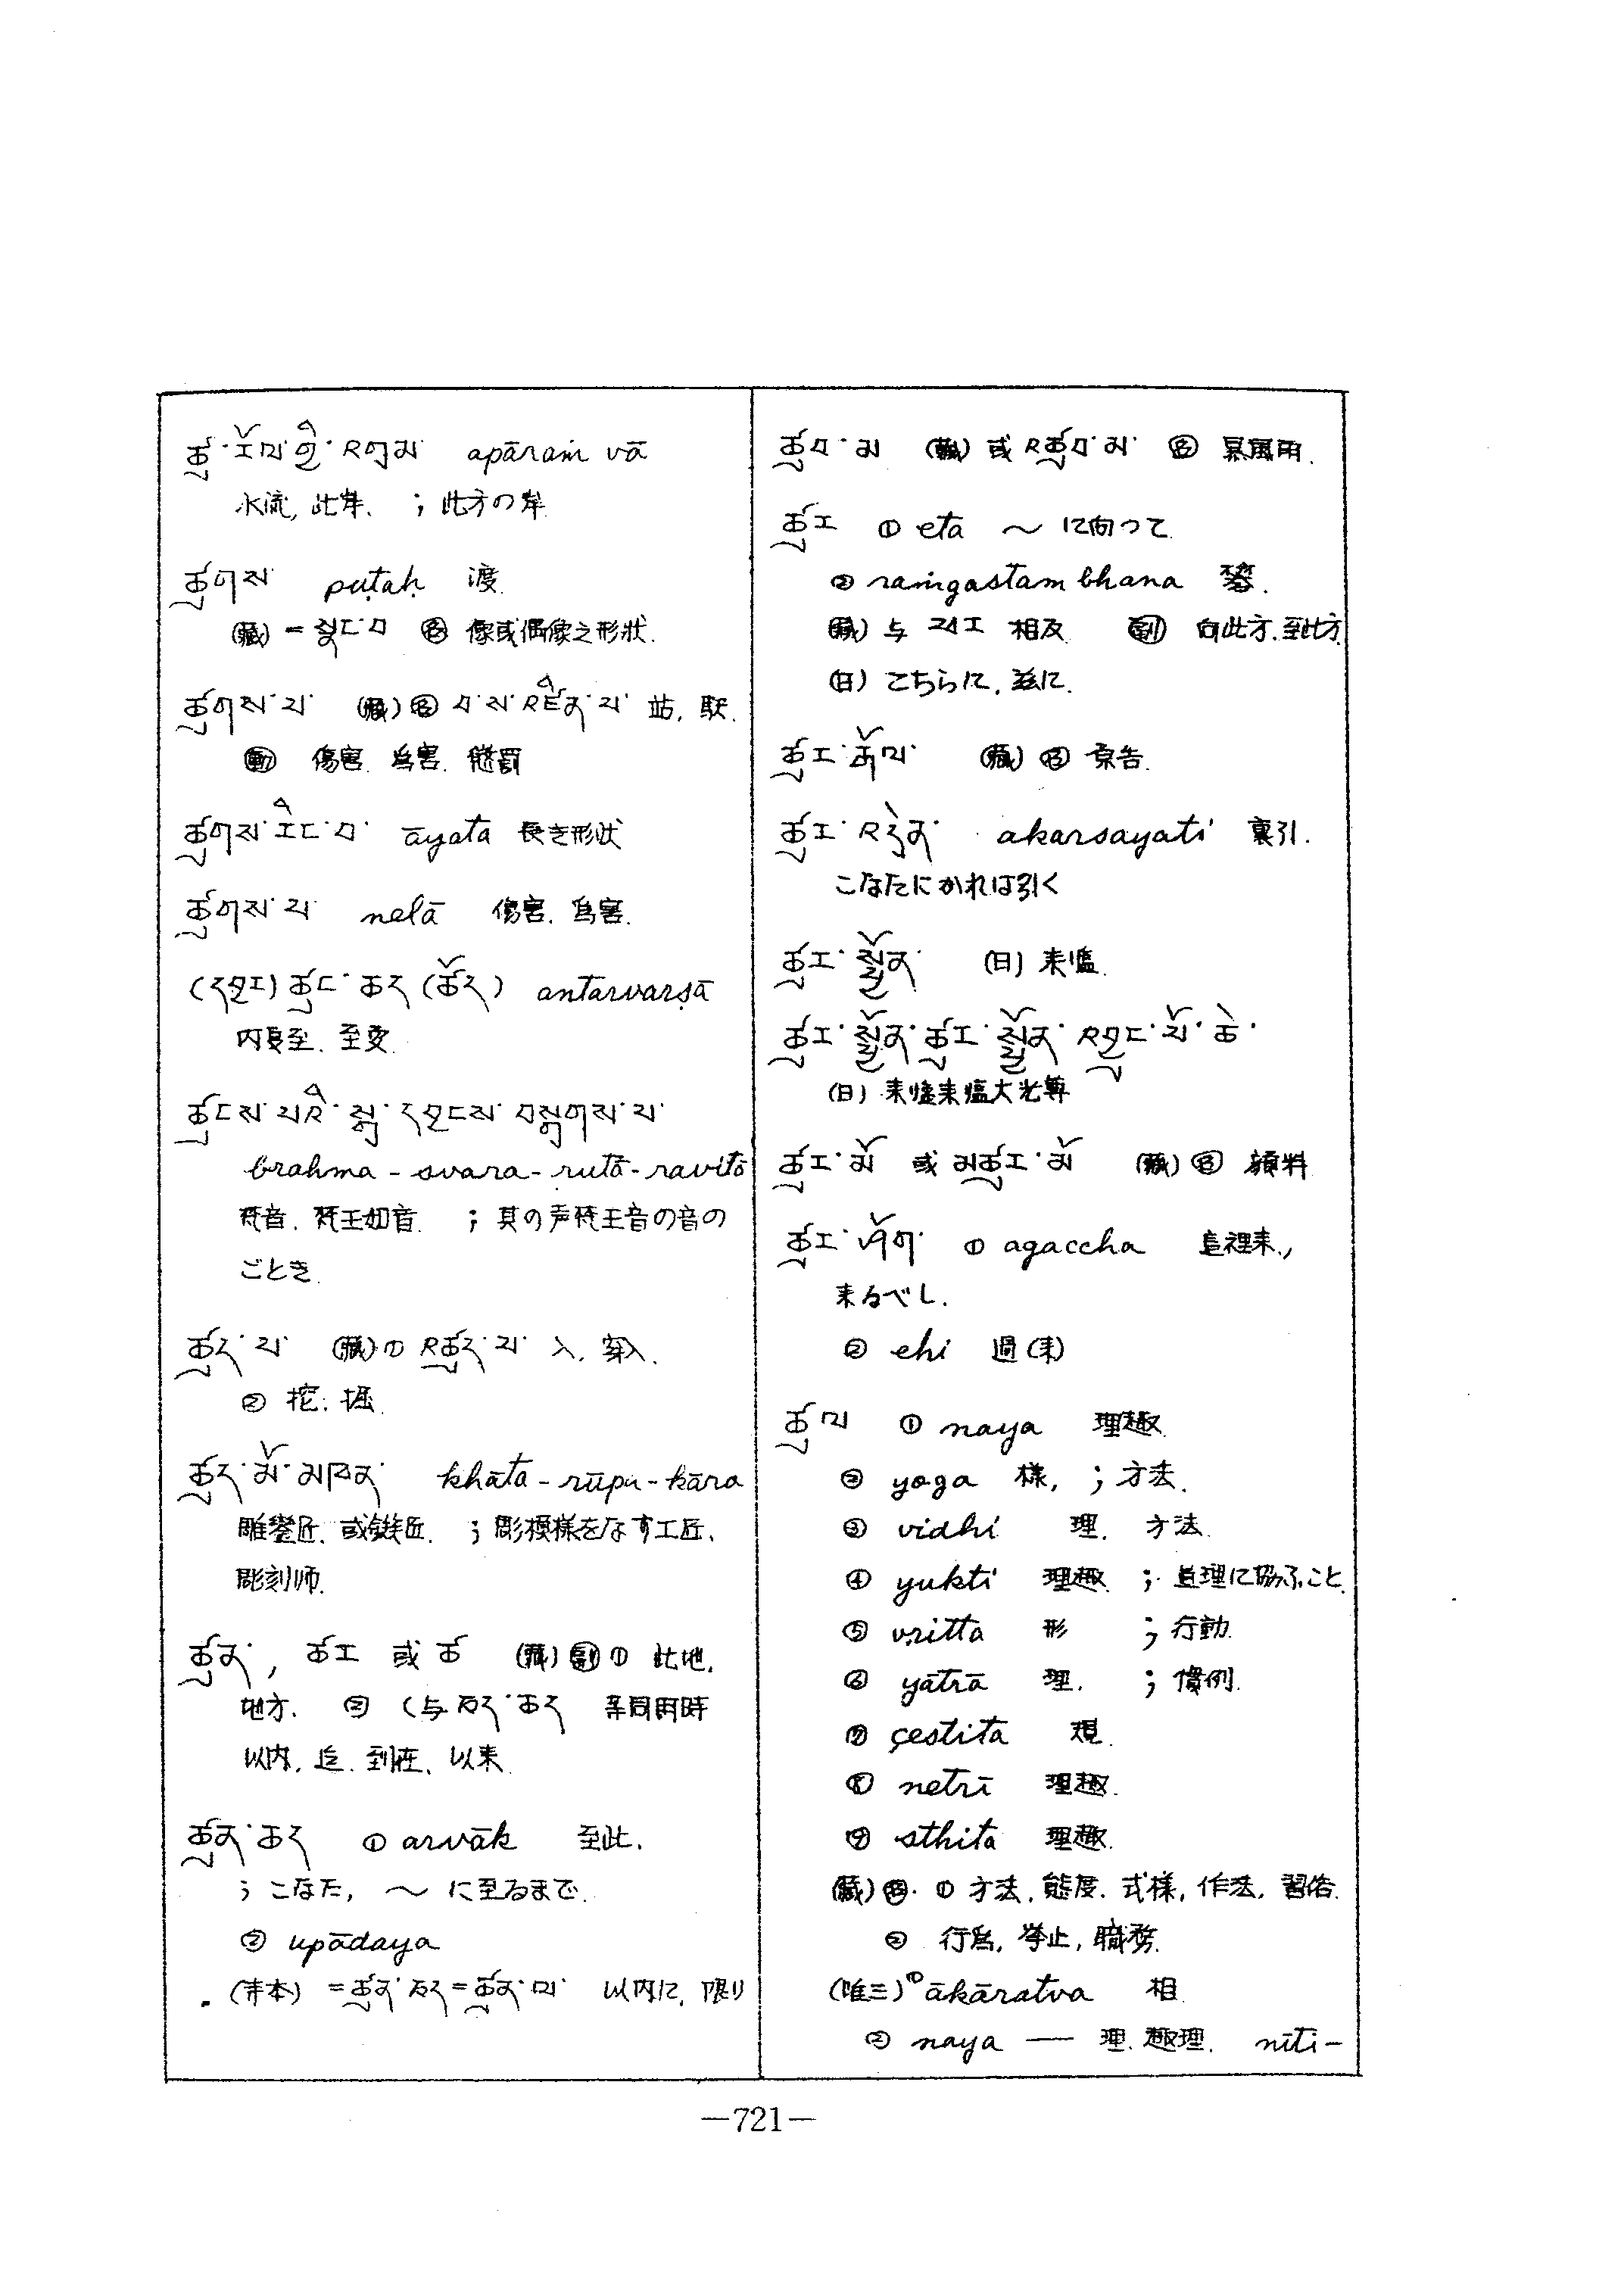 ཚུ་རོལ་གྱི་འགྲམ apāraṁ vā
水流, 此岸、 ; 此方の岸
ཚུགས puṭaḥ 渡.
(藏) = 名 像或偶像之形狀.
ཚུགས་པ་ (藏) 名 站, 駅.
動 傷害. 為害. 懲罰
ཚུགས་རིང་བ་ āyata 長き形状
ཚུགས་པ nelā 傷害. 為害.
ཚུང་ཆར antarvarṣā
内夏至.
ཚངས་པའི་སྒྲ་དབྱངས་བསྒྲགས་པ་
brahma - svara - rutā - ravitā
梵音. 梵王如音. ; 其の声梵王音の音の
ごとき.
ཚུད་པ་ (藏) ① འཚུད་པ་ 入, 穿入.
② 挖. 掘.
ཚུད་མོ་མཁན་ khāta - rūpa - kāra
雕鑾匠. 或鐫匠. ; 彫模様をなす工匠.
彫刻师.
ཚུན་, ཚུར 或 (藏) 副 ① 此地.
地方. ② (与 等同用時
以内, 迄. 到在. 以来.
ཚུན་ཆད ① arvāk 至此.
; こなた, 〜 に至るまで.
② upādaya
(井本) = ཚུན་ཆད = ཚུན་ལ་ 以内に, 限り
ཚུབ་མ (藏) 或 འཚུབ་མ་ 名 暴風雨.
ཚུར ① eta 〜 に向って.
② raṁgastambhana
(藏) 与 ཕར 相反. 副 向此方. 至此方
(日) こちらに, 茲に.
ཚུར་རྒོལ་ (藏) 名 原告.
ཚུར་འདྲེན་ akarsayati 裏引.
こなたにかれは引く
ཚུར་སྨྱོན་ (日) 来
ཚུར་སྨྱོན་ཚུར་སྨྱོན་འབྱུང་པོ་ཆེ་
ཚུར་མོ 或 མཚུར་མོ (藏) 名 顔料
ཚུར་ཤོག་ ① agaccha 這裡来.,
来るべし.
② ehi 過(来)
ཚུལ ① naya 理趣.
② yoga 様, ; 方法.
③ vidhi 理. 方法.
④ yukti 理趣. ; 道理に協ふこと.
⑤ vritta 形 ; 行動.
⑥ yātrā 理. ; 慣例.
⑦ çestita 規.
⑧ netrī 理趣.
⑨ sthita 理趣.
(藏) 名. ① 方法, 態度. 式様, 作法, 習俗.
② 行為, 挙止, 職務.
(唯三) ① ākāratva 相.
② naya — 理. 趣理. nīti-
—721—